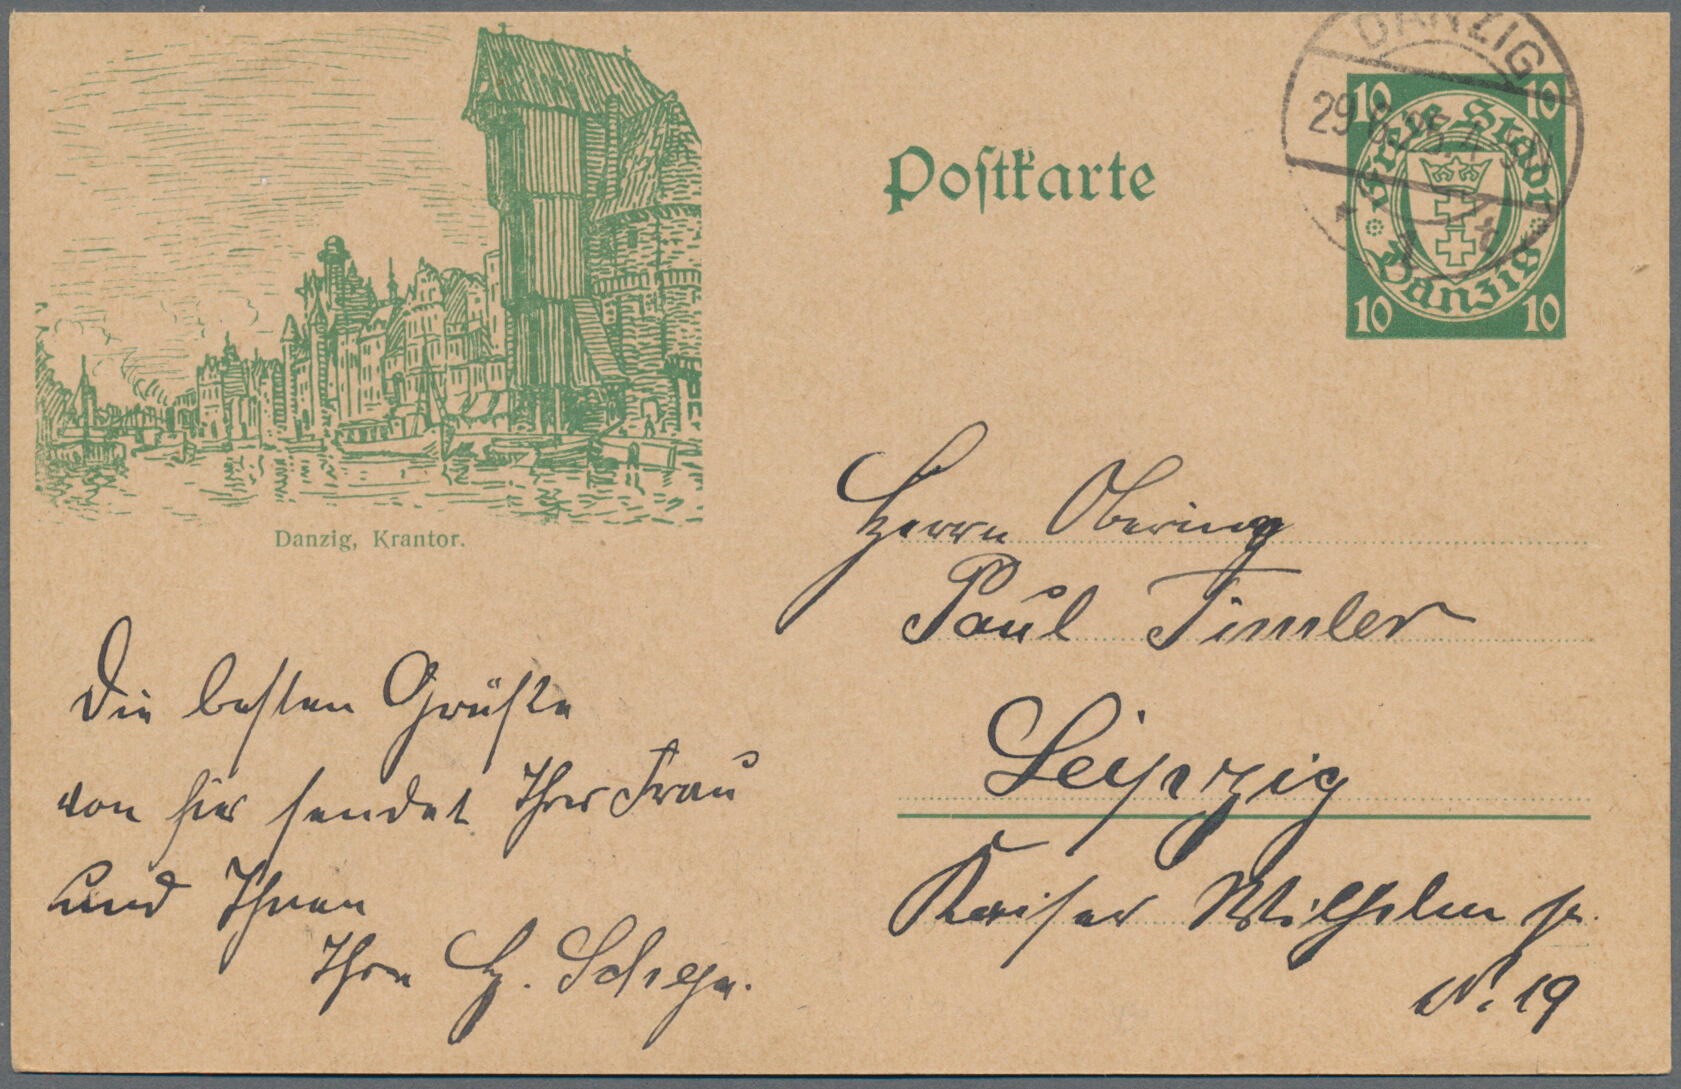 DANZIG
29.6.25.
10 10
Freie Stadt
Danzig
10 10
Postkarte
Danzig, Krantor.
Herrn Obering
Paul Timler
Leipzig
Kaiser Wilhelm str.
N. 19
Die besten Grüße
von hier sendet Ihrer Frau
und Ihnen
Ihre H.